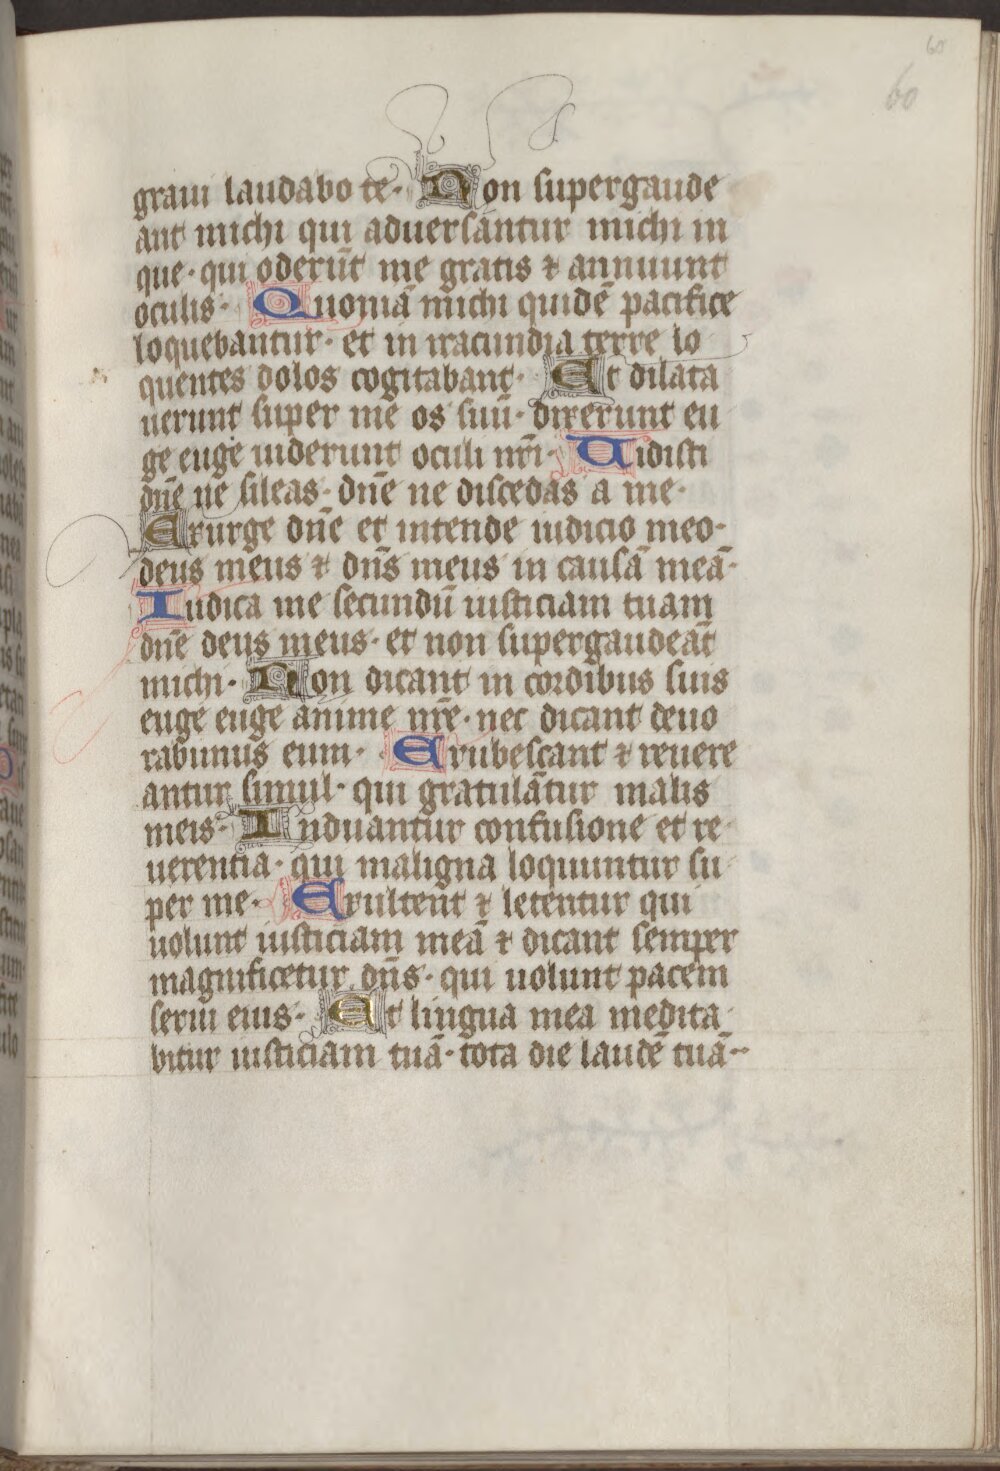 60
60
graui laudabo te· Non supergaude
ant michi qui aduersantur michi in
que· qui oderūt me gratis ⁊ annuunt
oculis· Quoniā michi quidē pacifice
loquebantur· et in iracundia terre lo
quentes dolos cogitabant· Et dilata
uerunt super me os suū· dixerunt eu
ge euge uiderunt oculi nr̄i· Uidisti
dn̄e ne sileas· dn̄e ne discedas a me·
Exurge dn̄e et intende iudicio meo·
deus meus ⁊ dn̄s meus in causā meā·
Iudica me secundū iusticiam tuam
dn̄e deus meus· et non supergaudeāt
michi· Non dicant in cordibus suis
euge euge anime nr̄e· nec dicant deuo
rabimus eum· Erubescant ⁊ reuere
antur simul· qui gratulātur malis
meis· Induantur confusione et re
uerentia· qui maligna loquuntur su
per me· Exultent ⁊ letentur qui
uolunt iusticiam meā ⁊ dicant semper
magnificetur dn̄s· qui uolunt pacem
serui eius· Et lingua mea medita
bitur iusticiam tuā· tota die laudē tuā·